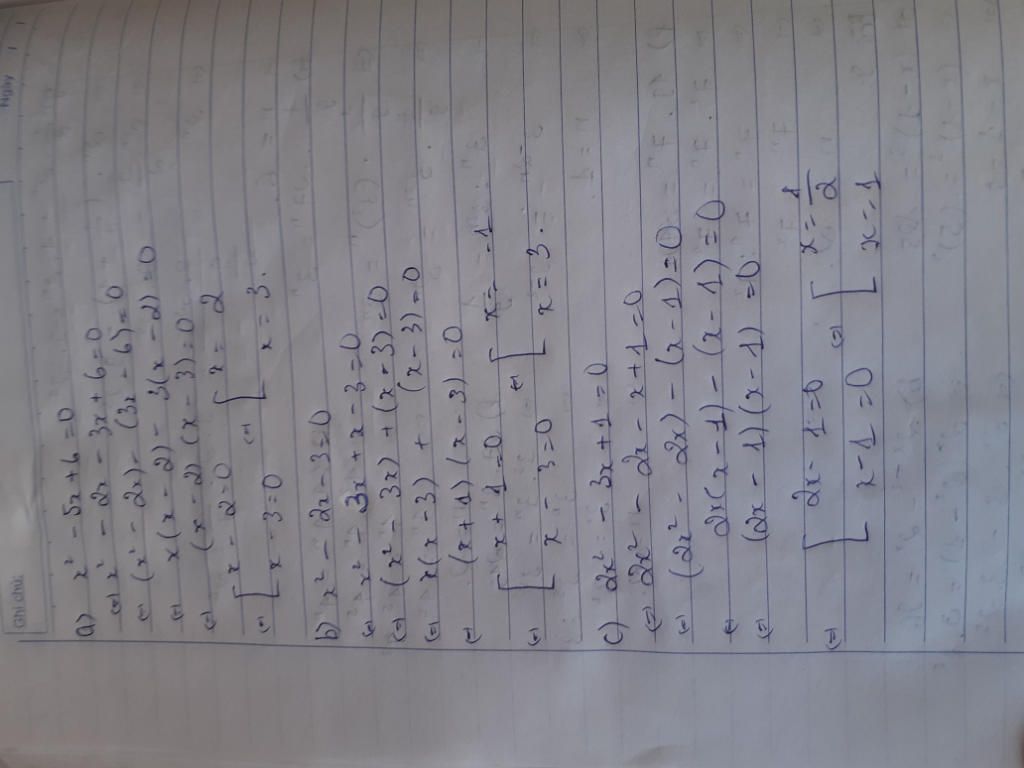 Ghi chú:
Ngày
a) x² - 5x + 6 = 0
(=) x² - 2x - 3x + 6 = 0
(=) (x² - 2x) - (3x - 6) = 0
(=) x(x - 2) - 3(x - 2) = 0
(=) (x - 2)(x - 3) = 0
(=) [ x - 2 = 0 (=) [ x = 2
x - 3 = 0 x = 3.
b) x² - 2x - 3 = 0
(=) x² - 3x + x - 3 = 0
(=) (x² - 3x) + (x - 3) = 0
(=) x(x - 3) + (x - 3) = 0
(=) (x + 1)(x - 3) = 0
(=) [ x + 1 = 0 (=) [ x = -1
x - 3 = 0 x = 3.
c) 2x² - 3x + 1 = 0
(=) 2x² - 2x - x + 1 = 0
(=) (2x² - 2x) - (x - 1) = 0
(=) 2x(x - 1) - (x - 1) = 0
(=) (2x - 1)(x - 1) = 0
(=) [ 2x - 1 = 0 (=) [ x = 1/2
x - 1 = 0 x = 1